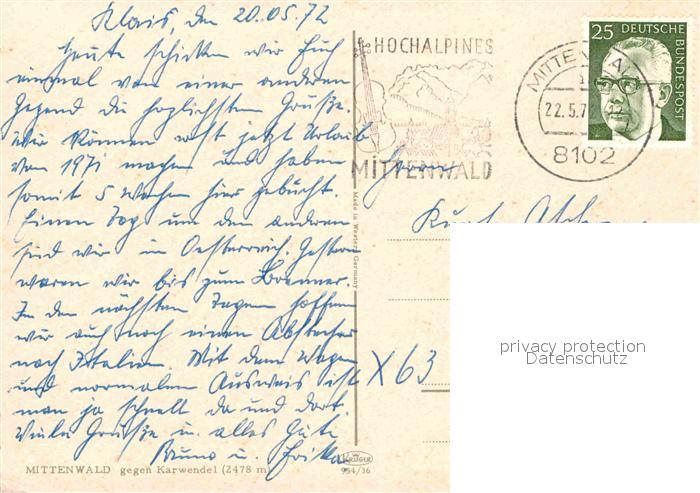 Klais, den 20.05.72
Heute schicken wir Euch
einmal von einer anderen
Gegend die herzlichsten Grüße.
Wir können erst jetzt Urlaub
von 1971 machen und haben
somit 5 Wochen hier gebucht.
Einen Tag um den anderen
sind wir in Oesterreich. Gestern
waren wir bis zum Brenner.
In den nächsten Tagen hoffen
wir auch noch einen Abstecher
nach Italien. Mit dem Wagen
und normalen Ausweis ist
man ja schnell da und dort.
Viele Grüße u. alles Gute
Bruno u. Erika
MITTENWALD gegen Karwendel (2478 m)
Made in Western Germany
KRÜGER
954/36
HOCHALPINES
MITTENWALD
MITTENWALD
22.5.7
8102
25 DEUTSCHE
BUNDESPOST
Kurt
X63
privacy protection
Datenschutz